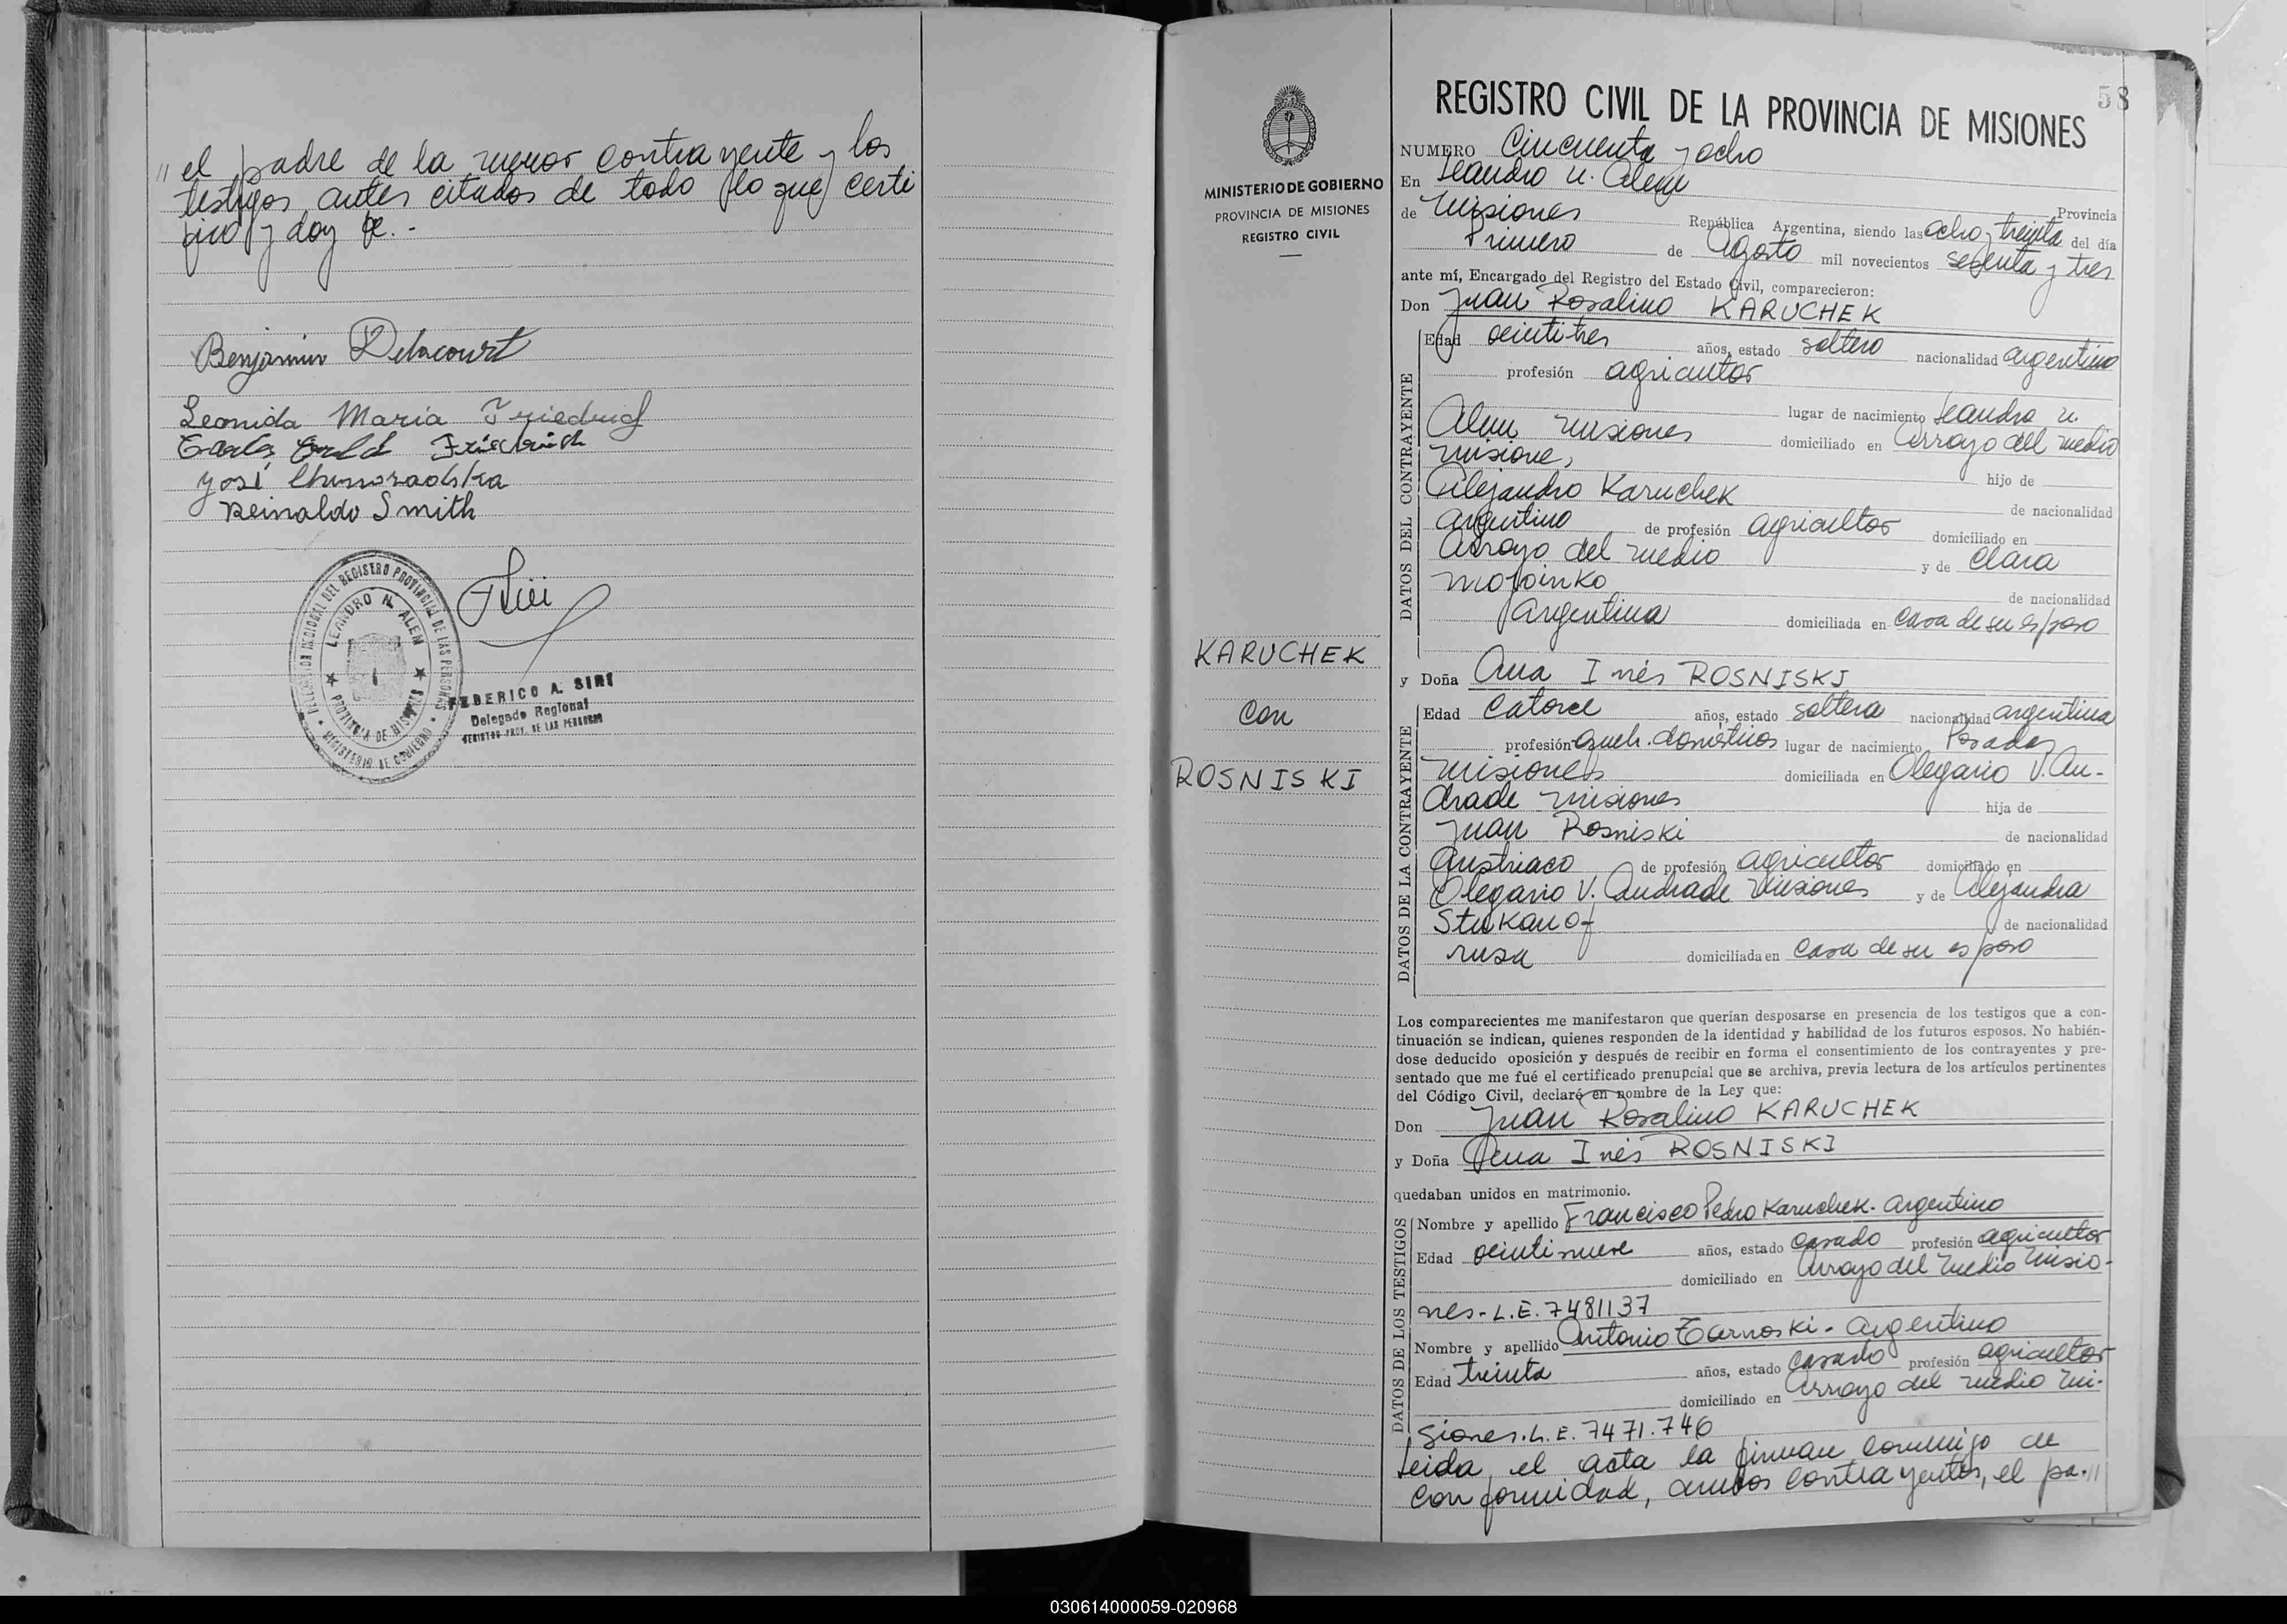 " el padre de la menor contrayente y los
testigos antes citados de todo lo que certi
fico y doy fe.-
Benjamin Delacourt
Leonida Maria Friedrich
Carlos Friedrich
José
Reinaldo Smith
DELEGACION REGIONAL DEL REGISTRO PROVINCIAL DE LAS PERSONAS
LEANDRO N. ALEM
PROVINCIA DE MISIONES
MINISTERIO DE GOBIERNO
FEDERICO A. SIRI
Delegado Regional
REGISTRO PROV. DE LAS PERSONAS
MINISTERIO DE GOBIERNO
PROVINCIA DE MISIONES
REGISTRO CIVIL
KARUCHEK
con
ROSNISKI
58
REGISTRO CIVIL DE LA PROVINCIA DE MISIONES
NUMERO Cincuenta y ocho
En Leandro N. Alem Provincia
de Misiones República Argentina, siendo las ocho y treinta del día
Primero de Agosto mil novecientos sesenta y tres
ante mí, Encargado del Registro del Estado Civil, comparecieron:
Don Juan Rosalino KARUCHEK
DATOS DEL CONTRAYENTE
Edad veintitres años, estado soltero nacionalidad argentino
profesión agricultor
lugar de nacimiento Leandro N.
Alem Misiones domiciliado en Arroyo del medio
Misiones
hijo de
Alejandro Karuchek de nacionalidad
Argentino de profesión agricultor domiciliado en
Arroyo del medio y de Clara
Mofoinko de nacionalidad
Argentina domiciliada en casa de su esposo
y Doña Ana Inés ROSNISKI
DATOS DE LA CONTRAYENTE
Edad Catorce años, estado soltera nacionalidad argentina
profesión queh. domésticos lugar de nacimiento Posadas
Misiones domiciliada en Olegario V. An-
drade Misiones hija de
Juan Rosniski de nacionalidad
Austriaco de profesión agricultor domiciliado en
Olegario V. Andrade Misiones y de Alejandra
Stukanof de nacionalidad
rusa domiciliada en casa de su esposo
Los comparecientes me manifestaron que querían desposarse en presencia de los testigos que a con-
tinuación se indican, quienes responden de la identidad y habilidad de los futuros esposos. No habién-
dose deducido oposición y después de recibir en forma el consentimiento de los contrayentes y pre-
sentado que me fué el certificado prenupcial que se archiva, previa lectura de los artículos pertinentes
del Código Civil, declaré en nombre de la Ley que:
Don Juan Rosalino KARUCHEK
y Doña Ana Inés ROSNISKI
quedaban unidos en matrimonio.
DATOS DE LOS TESTIGOS
Nombre y apellido Francisco Pedro Karuchek. argentino
Edad veintinueve años, estado casado profesión agricultor
domiciliado en Arroyo del Medio Misio-
nes-L.E. 7481137
Nombre y apellido Antonio Tarnoski - argentino
Edad treinta años, estado casado profesión agricultor
domiciliado en Arroyo del medio Mi-
siones. L.E. 7471.746
Leida el acta la firman conmigo de
conformidad, ambos contrayentes, el pa-"
030614000059-020968